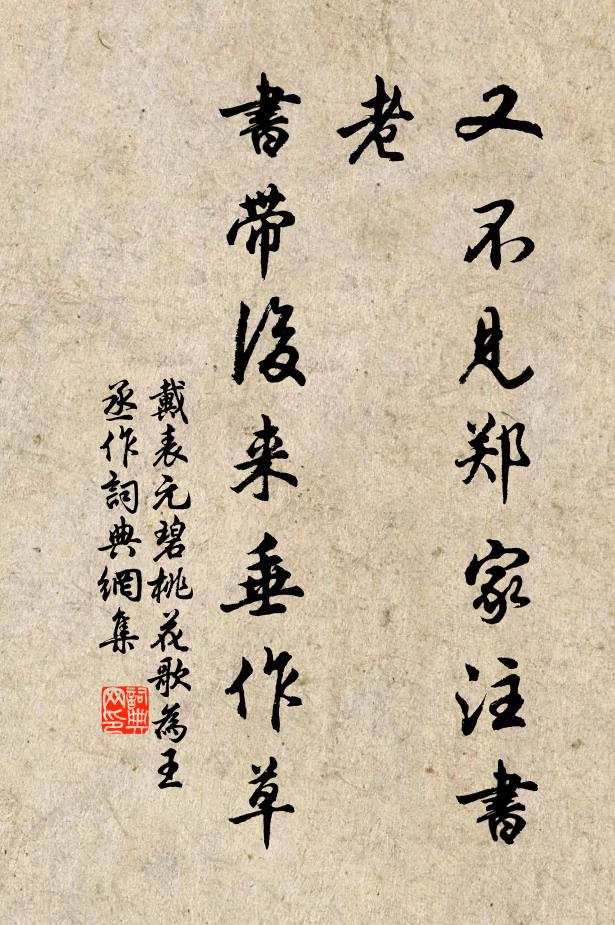 又不见郑家注書
老
書帶後来垂作草
戴表元碧桃花歌為王
丞作詞典網集
詞典
网印